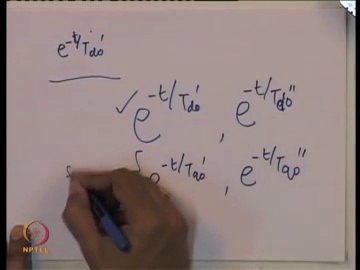 e^{-t/T'_{do}}
✓ e^{-t/T'_{do}} , e^{-t/T''_{do}}
e^{-t/T'_{qo}} , e^{-t/T''_{qo}}
NPTEL